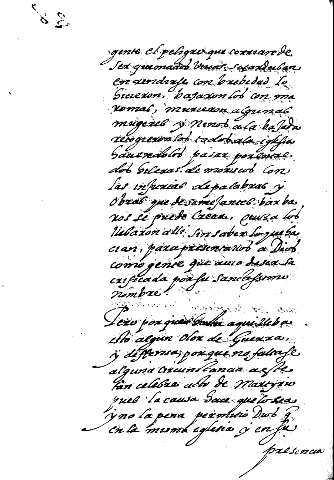 gente el peligro que corrian de
ser quemados vivos, acordaban
en rendirse con brebedad lo
hicieron, bajaron los con ma
romas, murieron algunas
mugeres y Niños a la bajada
recogieron los todos a la iglesia
haciendolos pasar por entre
dos hileras de moriscos con
las injurias de palabras y
obras que de semejantes barba
ros se puede creer, quiza los
llebaron alli sin saber lo que ha
cian, para presentarlos a Dios
como gente que avia de ser sa
crificada por su santissimo
nombre.
Pero por que hasta aqui lleba
esto algun olor de Guerra,
y defensa, porque no faltase
alguna circunstancia a este
tan celebre acto de Martyrio
pues la causa hace que lo sea
y no la pena permitio Dios q
en la misma iglesia y en su
presencia